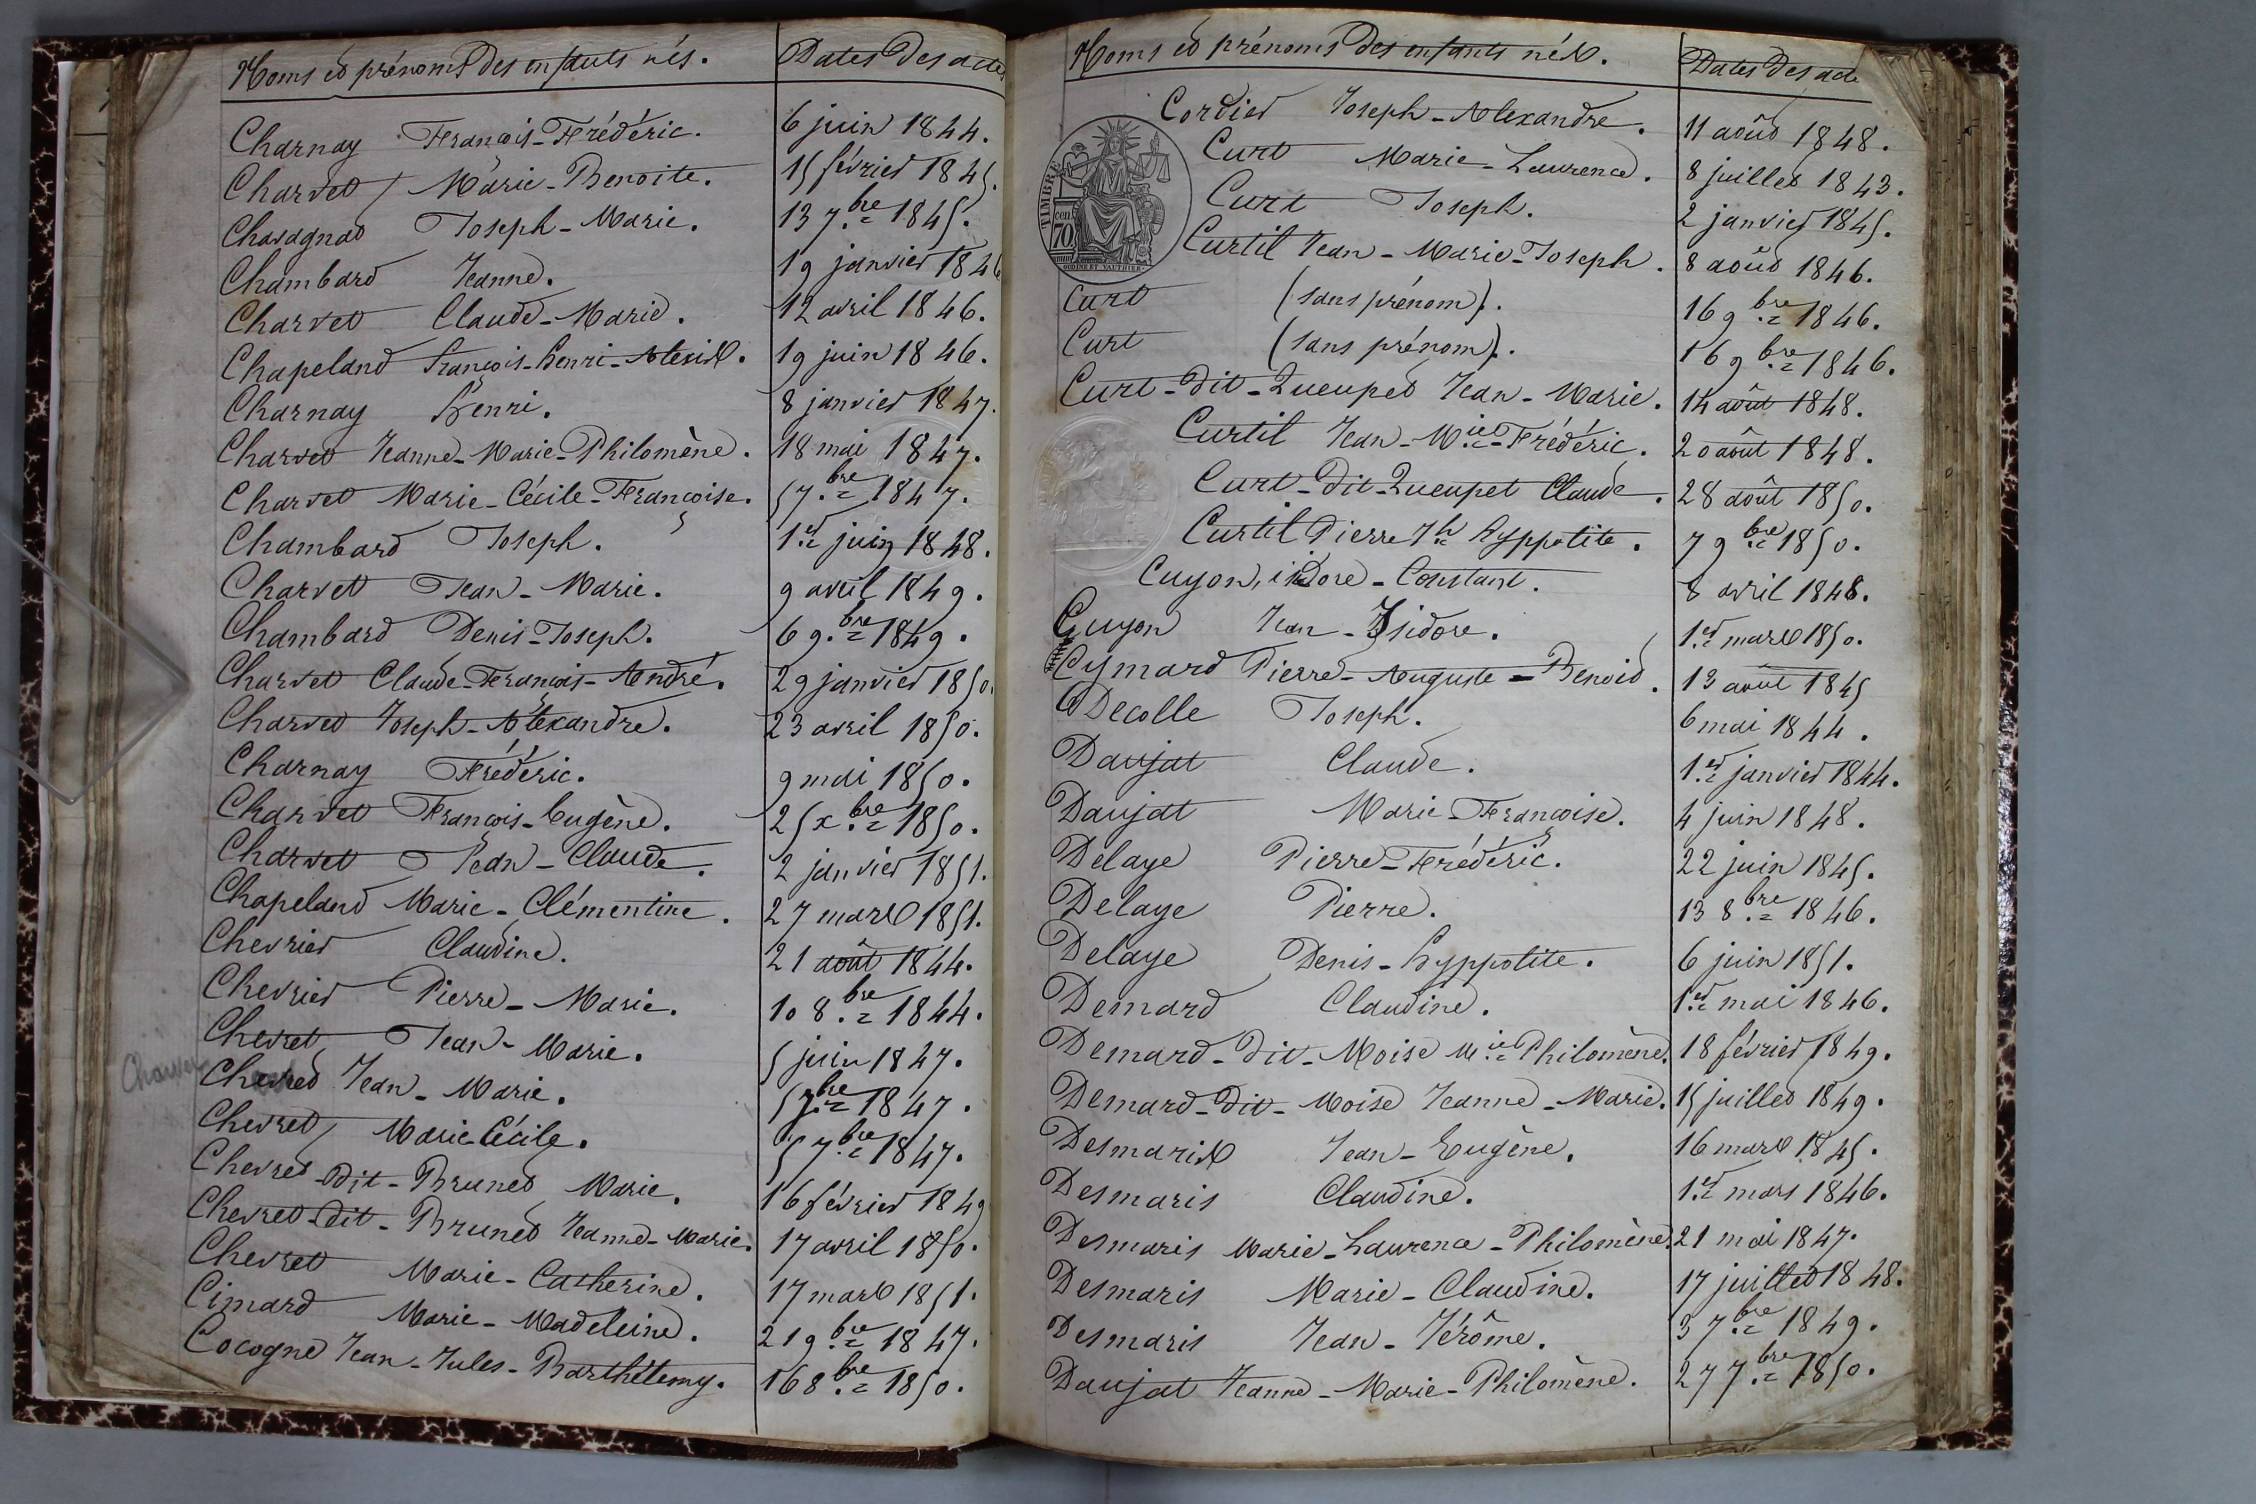 Noms et prénoms des enfants nés. Dates des actes
Charnay François-Frédéric. 6 juin 1844.
Charvet Marie-Benoite. 15 février 1845.
Chavagnat Joseph-Marie. 13 7.bre 1845.
Chambard Jeanne. 19 janvier 1846
Charvet Claude-Marie. 12 avril 1846.
Chapeland François-henri-Alexis. 19 juin 1846.
Charnay henri. 8 janvier 1847.
Charvet Jeanne-Marie-Philomène. 18 mai 1847.
Charvet Marie-Cécile-Françoise. 5 7.bre 1847.
Chambard Joseph. 1.er juin 1848.
Charvet Jean-Marie. 9 avril 1849.
Chambard Denis-Joseph. 6 9.bre 1849.
Charvet Claude-François-André. 29 janvier 1850.
Charvet Joseph-Alexandre. 23 avril 1850.
Charnay Frédéric. 9 mai 1850.
Charvet François-Eugène. 25 x.bre 1850.
Charvet Jean-Claude. 2 janvier 1851.
Chapeland Marie-Clémentine. 27 mars 1851.
Chevrier Claudine. 21 août 1844.
Chevrier Pierre-Marie. 10 8.bre 1844.
Chevret Jean-Marie. 5 juin 1847.
Chevret Jean-Marie. 5 7.bre 1847.
Chevret Marie Cécile. 5 7.bre 1847.
Chevret-dit-Brunet Marie. 16 février 1849
Chevret-dit-Brunet Jeanne-Marie. 17 avril 1850.
Chevret Marie-Catherine. 17 mars 1851.
Cimard Marie-Madeleine. 21 9.bre 1847.
Cocogne Jean-Jules-Barthélemy. 16 8.bre 1850.
Noms et prénoms des enfants nés. Dates des acte
Cordier Joseph-Alexandre. 11 août 1848.
TIMBRE
cen
70
OUDINE ET VAUTHIER
Curt Marie-Laurence. 8 juillet 1843.
Curt Joseph. 2 janvier 1845.
Curtil Jean-Marie-Joseph. 8 août 1846.
Curt (sans prénom). 16 9.bre 1846.
Curt (sans prénom). 16 9.bre 1846.
Curt-dit-Queupet Jean-Marie. 14 août 1848.
Curtil Jean-M.ie-Frédéric. 20 août 1848.
Curt-dit-Queupet Claude. 28 août 1850.
Curtil Pierre J.h hyppolite. 7 9.bre 1850.
Cuyon, isidore-Constant. 8 avril 1848.
Guyon Jean-Isidore. 1.er mars 1850.
Cymard Pierre-Auguste-Benoit. 13 août 1845
Decolle Joseph. 6 mai 1844.
Daujat Claude. 1.er janvier 1844.
Daujat Marie-Françoise. 4 juin 1848.
Delaye Pierre-Frédéric. 22 juin 1845.
Delaye Pierre. 13 8.bre 1846.
Delaye Denis-hyppolite. 6 juin 1851.
Demard Claudine. 1.er mai 1846.
Demard-dit-Moise M.ie Philomène. 18 février 1849.
Demard-dit-Moise Jeanne-Marie. 15 juillet 1849.
Desmaris Jean-Eugène. 16 mars 1845.
Desmaris Claudine. 1.er mars 1846.
Desmaris Marie-Laurence-Philomène. 21 mai 1847.
Desmaris Marie-Claudine. 17 juillet 1848.
Desmaris Jean-Jérôme. 3 7.bre 1849.
Daujat Jeanne-Marie-Philomène. 27 7.bre 1850.